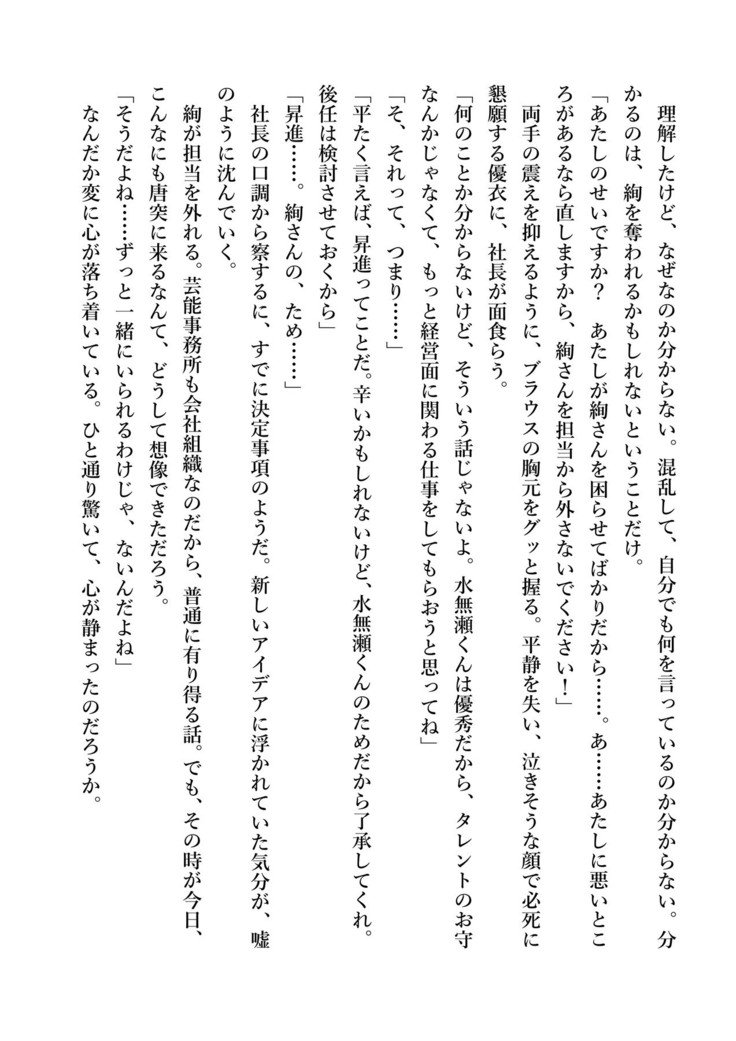 理解したけど、なぜなのか分からない。混乱して、自分でも何を言っているのか分からない。分
かるのは、絢を奪われるかもしれないということだけ。
「あたしのせいですか？　あたしが絢さんを困らせてばかりだから……。あ……あたしに悪いとこ
ろがあるなら直しますから、絢さんを担当から外さないでください！」
両手の震えを抑えるように、ブラウスの胸元をグッと握る。平静を失い、泣きそうな顔で必死に
懇願する優衣に、社長が面食らう。
「何のことか分からないけど、そういう話じゃないよ。水無瀬くんは優秀だから、タレントのお守
なんかじゃなくて、もっと経営面に関わる仕事をしてもらおうと思ってね」
「そ、それって、つまり……」
「平たく言えば、昇進ってことだ。辛いかもしれないけど、水無瀬くんのためだから了承してくれ。
後任は検討させておくから」
「昇進……。絢さんの、ため……」
社長の口調から察するに、すでに決定事項のようだ。新しいアイデアに浮かれていた気分が、嘘
のように沈んでいく。
絢が担当を外れる。芸能事務所も会社組織なのだから、普通に有り得る話。でも、その時が今日、
こんなにも唐突に来るなんて、どうして想像できただろう。
「そうだよね……ずっと一緒にいられるわけじゃ、ないんだよね」
なんだか変に心が落ち着いている。ひと通り驚いて、心が静まったのだろうか。